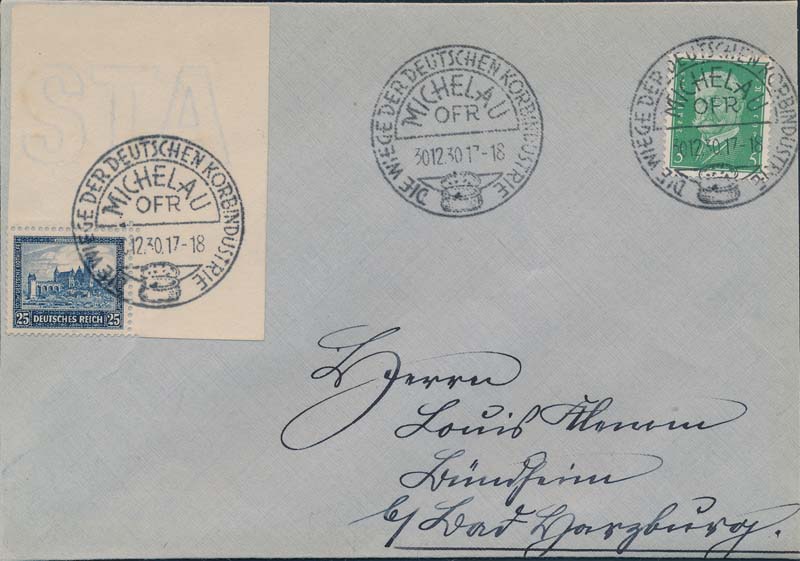 STA
DIE WIEGE DER DEUTSCHEN KORBINDUSTRIE
MICHELAU
OFR
30.12.30.17-18
DIE WIEGE DER DEUTSCHEN KORBINDUSTRIE
MICHELAU
OFR
30.12.30.17-18
5 5
DIE WIEGE DER DEUTSCHEN KORBINDUSTRIE
MICHELAU
OFR
.12.30.17-18
25 DEUTSCHES REICH 25
Herrn
Louis Klemm
Bündheim
b/ Bad Harzburg.